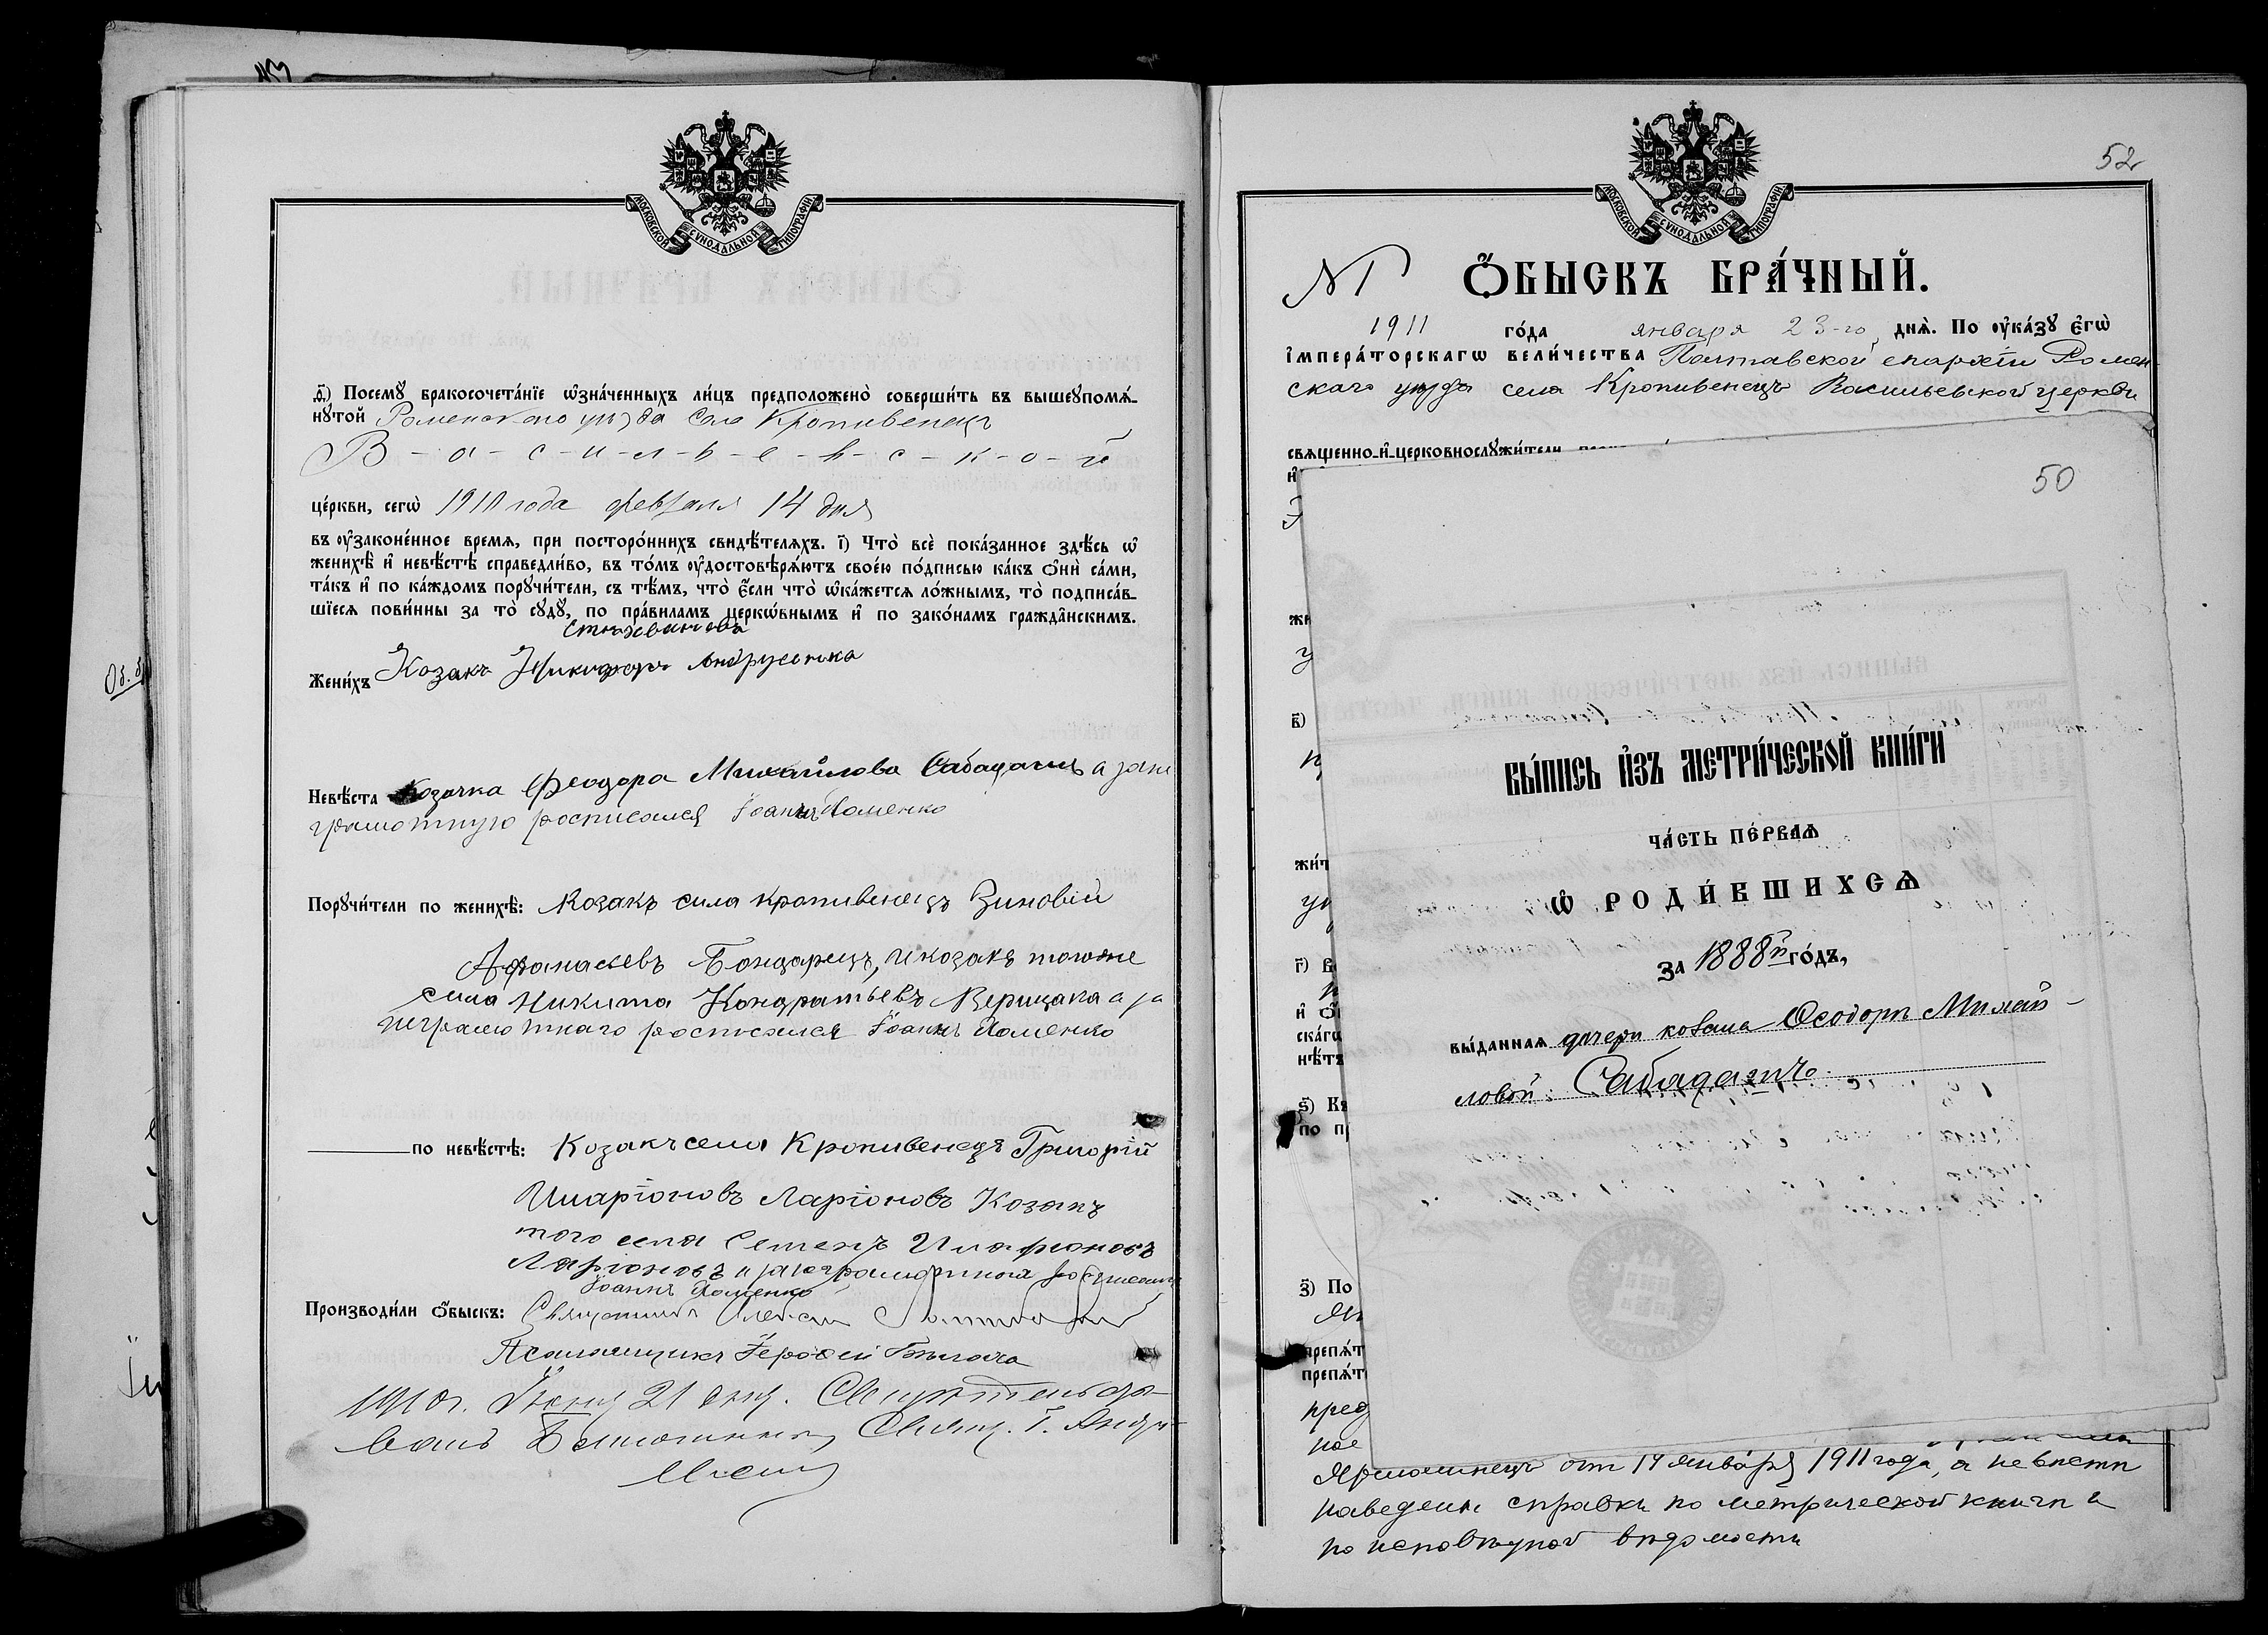 МОСКОВСКОЙ СѴНОДАЛЬНОЙ ТИПОГРАФІИ
д҃) Посемꙋ̀ бракосочета́нїе ѡ҆зна́ченныхъ ли́цъ предположено̀ соверши́ть въ вышеꙋпомѧ́-
нꙋтой Роменского уѣзда села Кропивенецъ
В-а-с-и-л-ь-е-в-с-к-о-й
це́ркви, сегѡ̀ 1910 года февраля 14 дня
въ ᲂу҆законе́нное времѧ, при посторо́ннихъ свидѣ́телѧхъ. і҃) Что̀ всѐ пока́занное здѣ́сь ѡ҆
женихѣ̀ и҆ невѣ́стѣ справедли́во, въ то́мъ ᲂу҆достовѣрѧ́ютъ свое́ю по́дписью ка́къ ѻ҆нѝ са́ми,
та́къ и҆ по ка́ждомъ порꙋчи́тели, съ тѣ́мъ, что̀ є҆́сли что̀ ѡ҆ка́жетсѧ ло́жнымъ, то̀ подписа́в-
шїесѧ пови́нны за то̀ сꙋдꙋ̀, по пра́виламъ церко́внымъ и҆ по зако́намъ гражда́нскимъ.
Жени́хъ Козакъ Никифоръ Андрусенка
Невѣ́ста Козачка Феодора Михайлова Сабадашъ а за не
грамотную росписался Іоаннъ Хоменко
Порꙋчи́тели по женихѣ̀: Козакъ села Кропивенецъ Зиновій
Афанасьевъ Бондарецъ, и козакъ тогоже
села Никита Кондратьевъ а за
неграмотнаго росписался Іоаннъ Хоменко
по невѣ́стѣ: Козакъ села Кропивенецъ Григорій
Иларіоновъ Ларіоновъ Козакъ
того села Семенъ Иларіоновъ
Ларіоновъ а за неграмотных росписался
Іоаннъ Хоменко
Производи́ли ѻ҆́быскъ: Священникъ
Псаломщикъ Іерофей
1910 г. Іюня 21 дня. Свидѣтельство-
валъ Благочинный, Свящ. І.
52
МОСКОВСКОЙ СѴНОДАЛЬНОЙ ТИПОГРАФІИ
№ 1 Ѻ҆́БЫСКЪ БРА́ЧНЫЙ.
1911 го́да января 23-го днѧ̀. По ᲂу҆ка́зꙋ є҆гѡ̀
і҆мпера́торскагѡ вели́чества Полтавской епархіи Ромен-
скаго уѣзда села Кропивенецъ Васильевской церкви
свѧще́нно-и҆-церковнослꙋжи́тели
50
ВЫ́ПИСЬ И҆ЗЪ МЕТРИ́ЧЕСКОЙ КНИ́ГИ
ЧА́СТЬ ПЕ́РВАѦ
Ѡ҆ РОДИ́ВШИХСѦ
за 1888й го́дъ,
вы́даннаѧ дочери козака Ѳеодорѣ Михай-
ловой Сабадашъ.
ж
в҃)
жи́т
г҃) В
и҆ ѻ҆
ска́гѡ
нѣ́тъ
ѕ҃) Къ
по п
з҃) По
препѧ́т
препѧ́т
пред
ное
Ярмолинецъ от 14 января 1911 года, а невѣсты
наведены справки по метрической книгѣ и
по исповѣдной вѣдомости